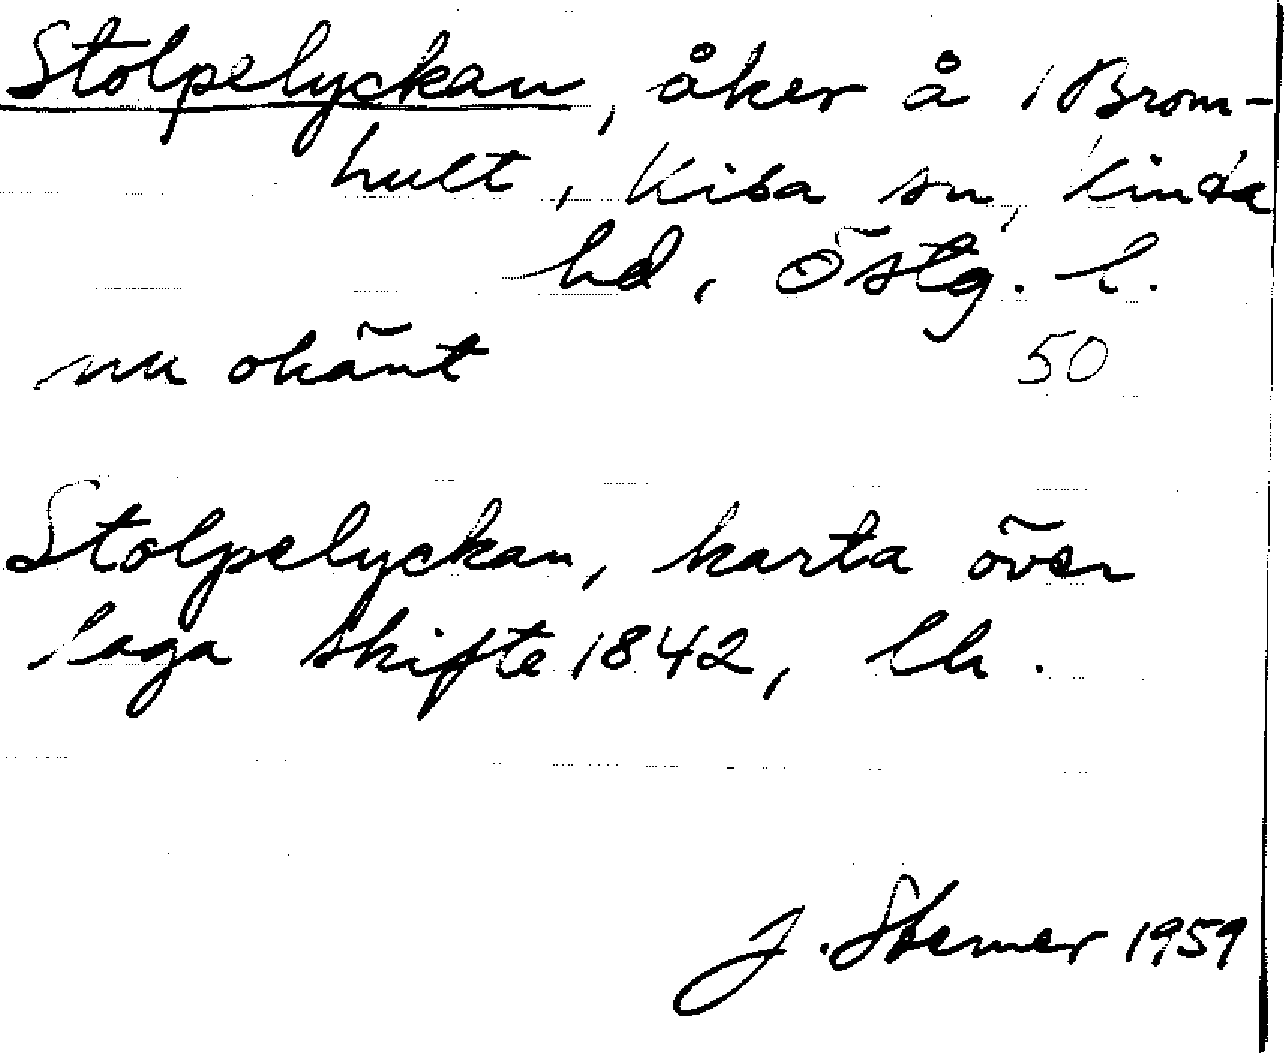 Stolpelyckan, åker å Brom-
hult, Kisa sn, Kinda
hd, Östg. l.
nu okänt 50
Stolpelyckan, karta över
laga skifte 1842, lk.
J. Stemer 1959